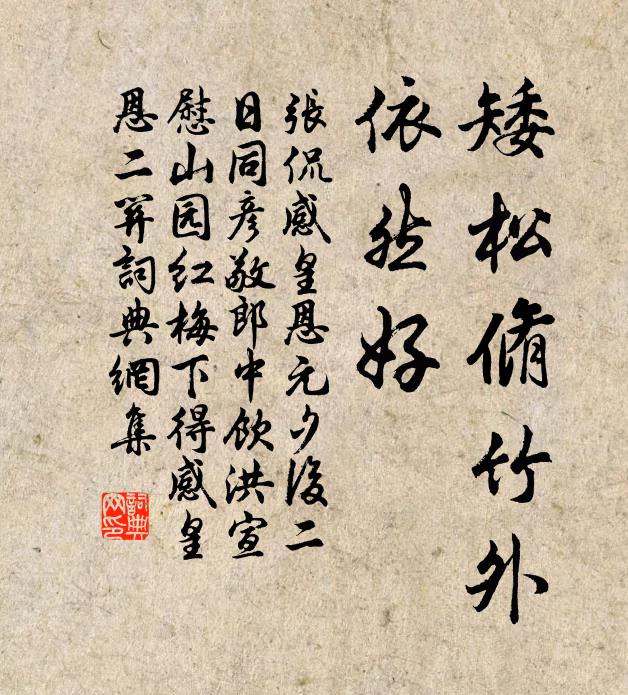 矮松脩竹外
依然好
張侃感皇恩元夕後二
日同彦敬郎中飲洪宣
慰山园红梅下得感皇
恩二筭詞典網集
詞典网印